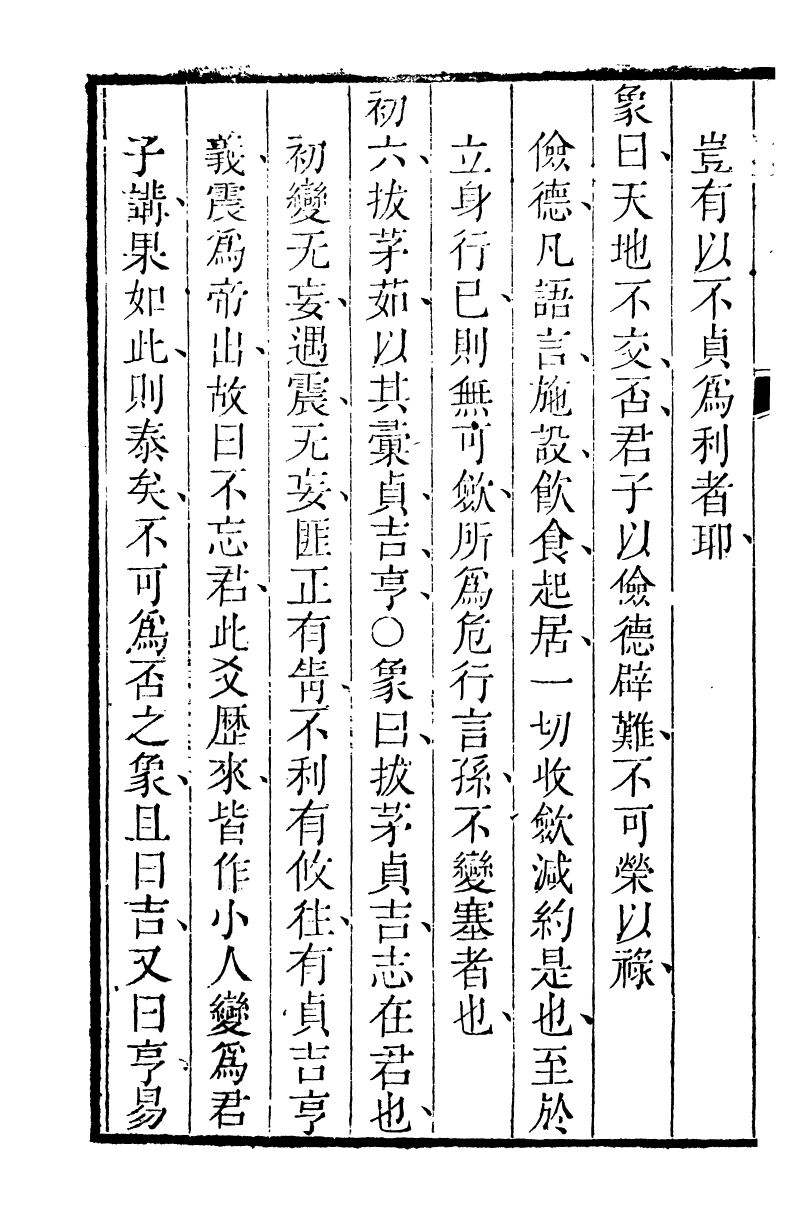 豈有以不貞爲利者耶、
象曰、天地不交、否、君子以儉德辟難、不可榮以祿、
儉德、凡語言、施設、飲食、起居、一切收歛減約是也、至於
立身行已、則無可歛、所爲危行言孫、不變塞者也、
初六、拔茅茹、以其彙貞、吉、亨、○象曰、拔茅貞吉、志在君也、
初變无妄、遇震、无妄、匪正有眚、不利有攸往、有貞吉亨
義、震爲帝出、故曰不忘君、此爻歷來、皆作小人變爲君
子講、果如此、則泰矣、不可爲否之象、且曰吉、又曰亨、易